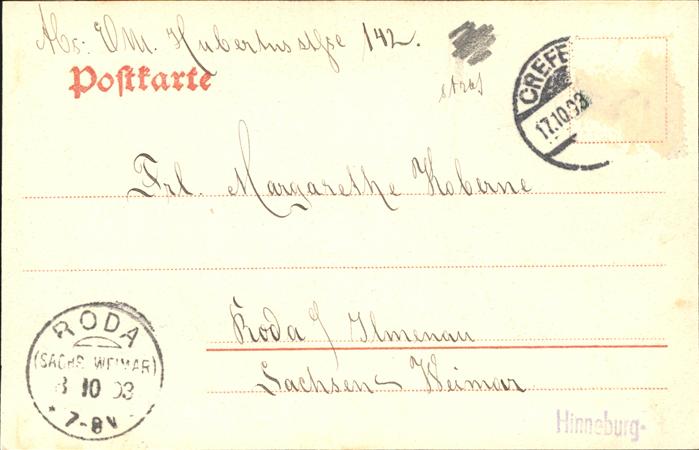 Abs: VM. Hubertusstrse 142.
Postkarte
CREFE
17.10.03
Frl. Margarethe Koberne
Roda b/ Ilmenau
Sachsen Weimar
RODA
(SACHS. WEIMAR)
8 10 03
* 7-8V
Hinneburg-